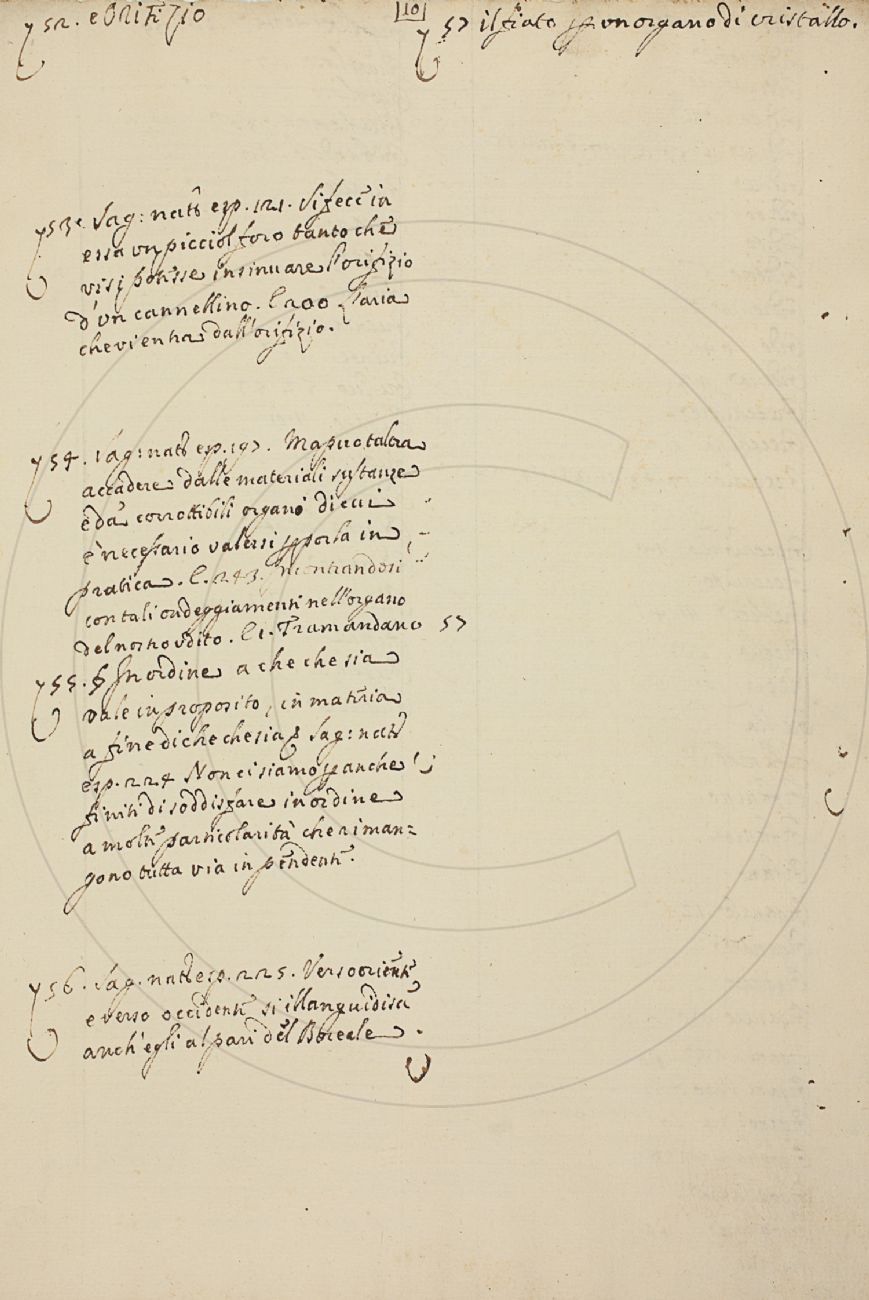 52. e Orifizio
|10|
57 il fiato p un organo di cristallo.
53. Sag: nat: esp. 121. Si fece in
essa un picciol foro tanto che
vi si potesse insinuare l'orifizio
d'un cannellino. E 200 l'aria
che vi entra dall'orifizio.
54. Sag: nat: esp. 197. Ma puo talora
accadere dalle materiali sustanze
e da corrottibili organi di cui
è necessario valersi p porla in
pratica. E. 243. Incontrandosi
con tali ondeggiamenti nell'organo
del nostro udito. E 1. Tramandano 57
55. § In ordine a che che sia
vale in proposito, in materia
a fine di che che sia § Sag: nat:
esp. 224 Non ci siamo p anche
finiti di soddisfare in ordine
a molte particolarità che riman=
gono tutta via in pendente.
56. Sag. nat: esp. 225. Verso oriente
e verso occidente si illanguidisca
anch'egli al pari del Boreale.